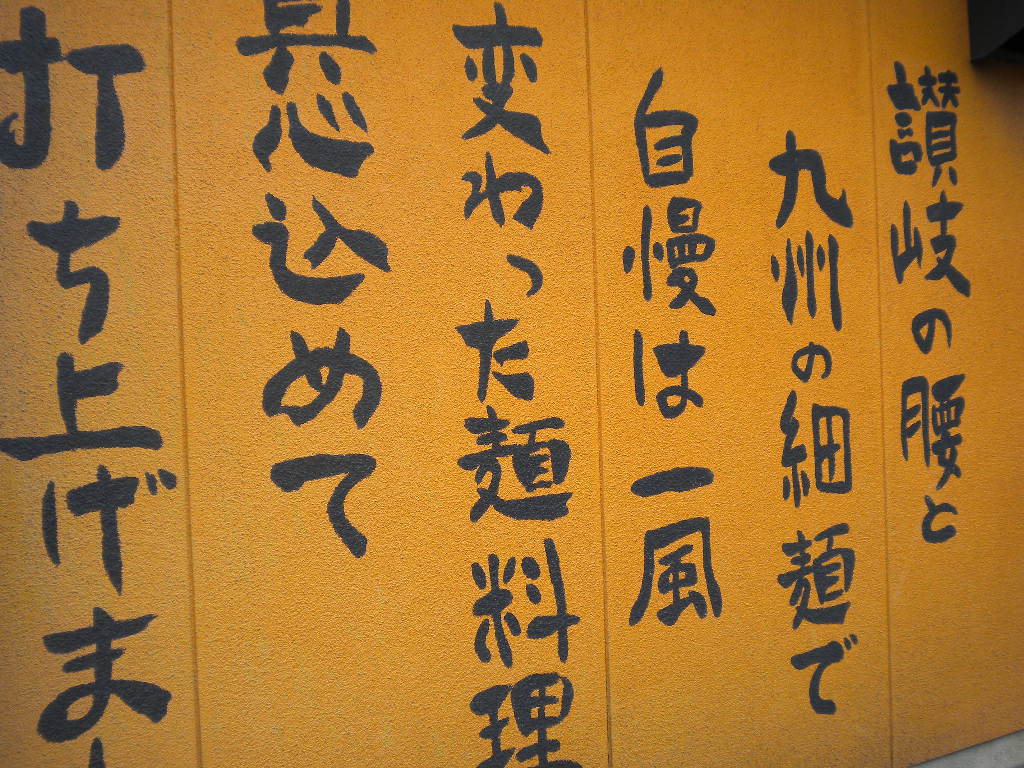 讃岐の腰と
九州の細麺で
自慢は一風
変わった麺料理
真心込めて
打ち上げまし